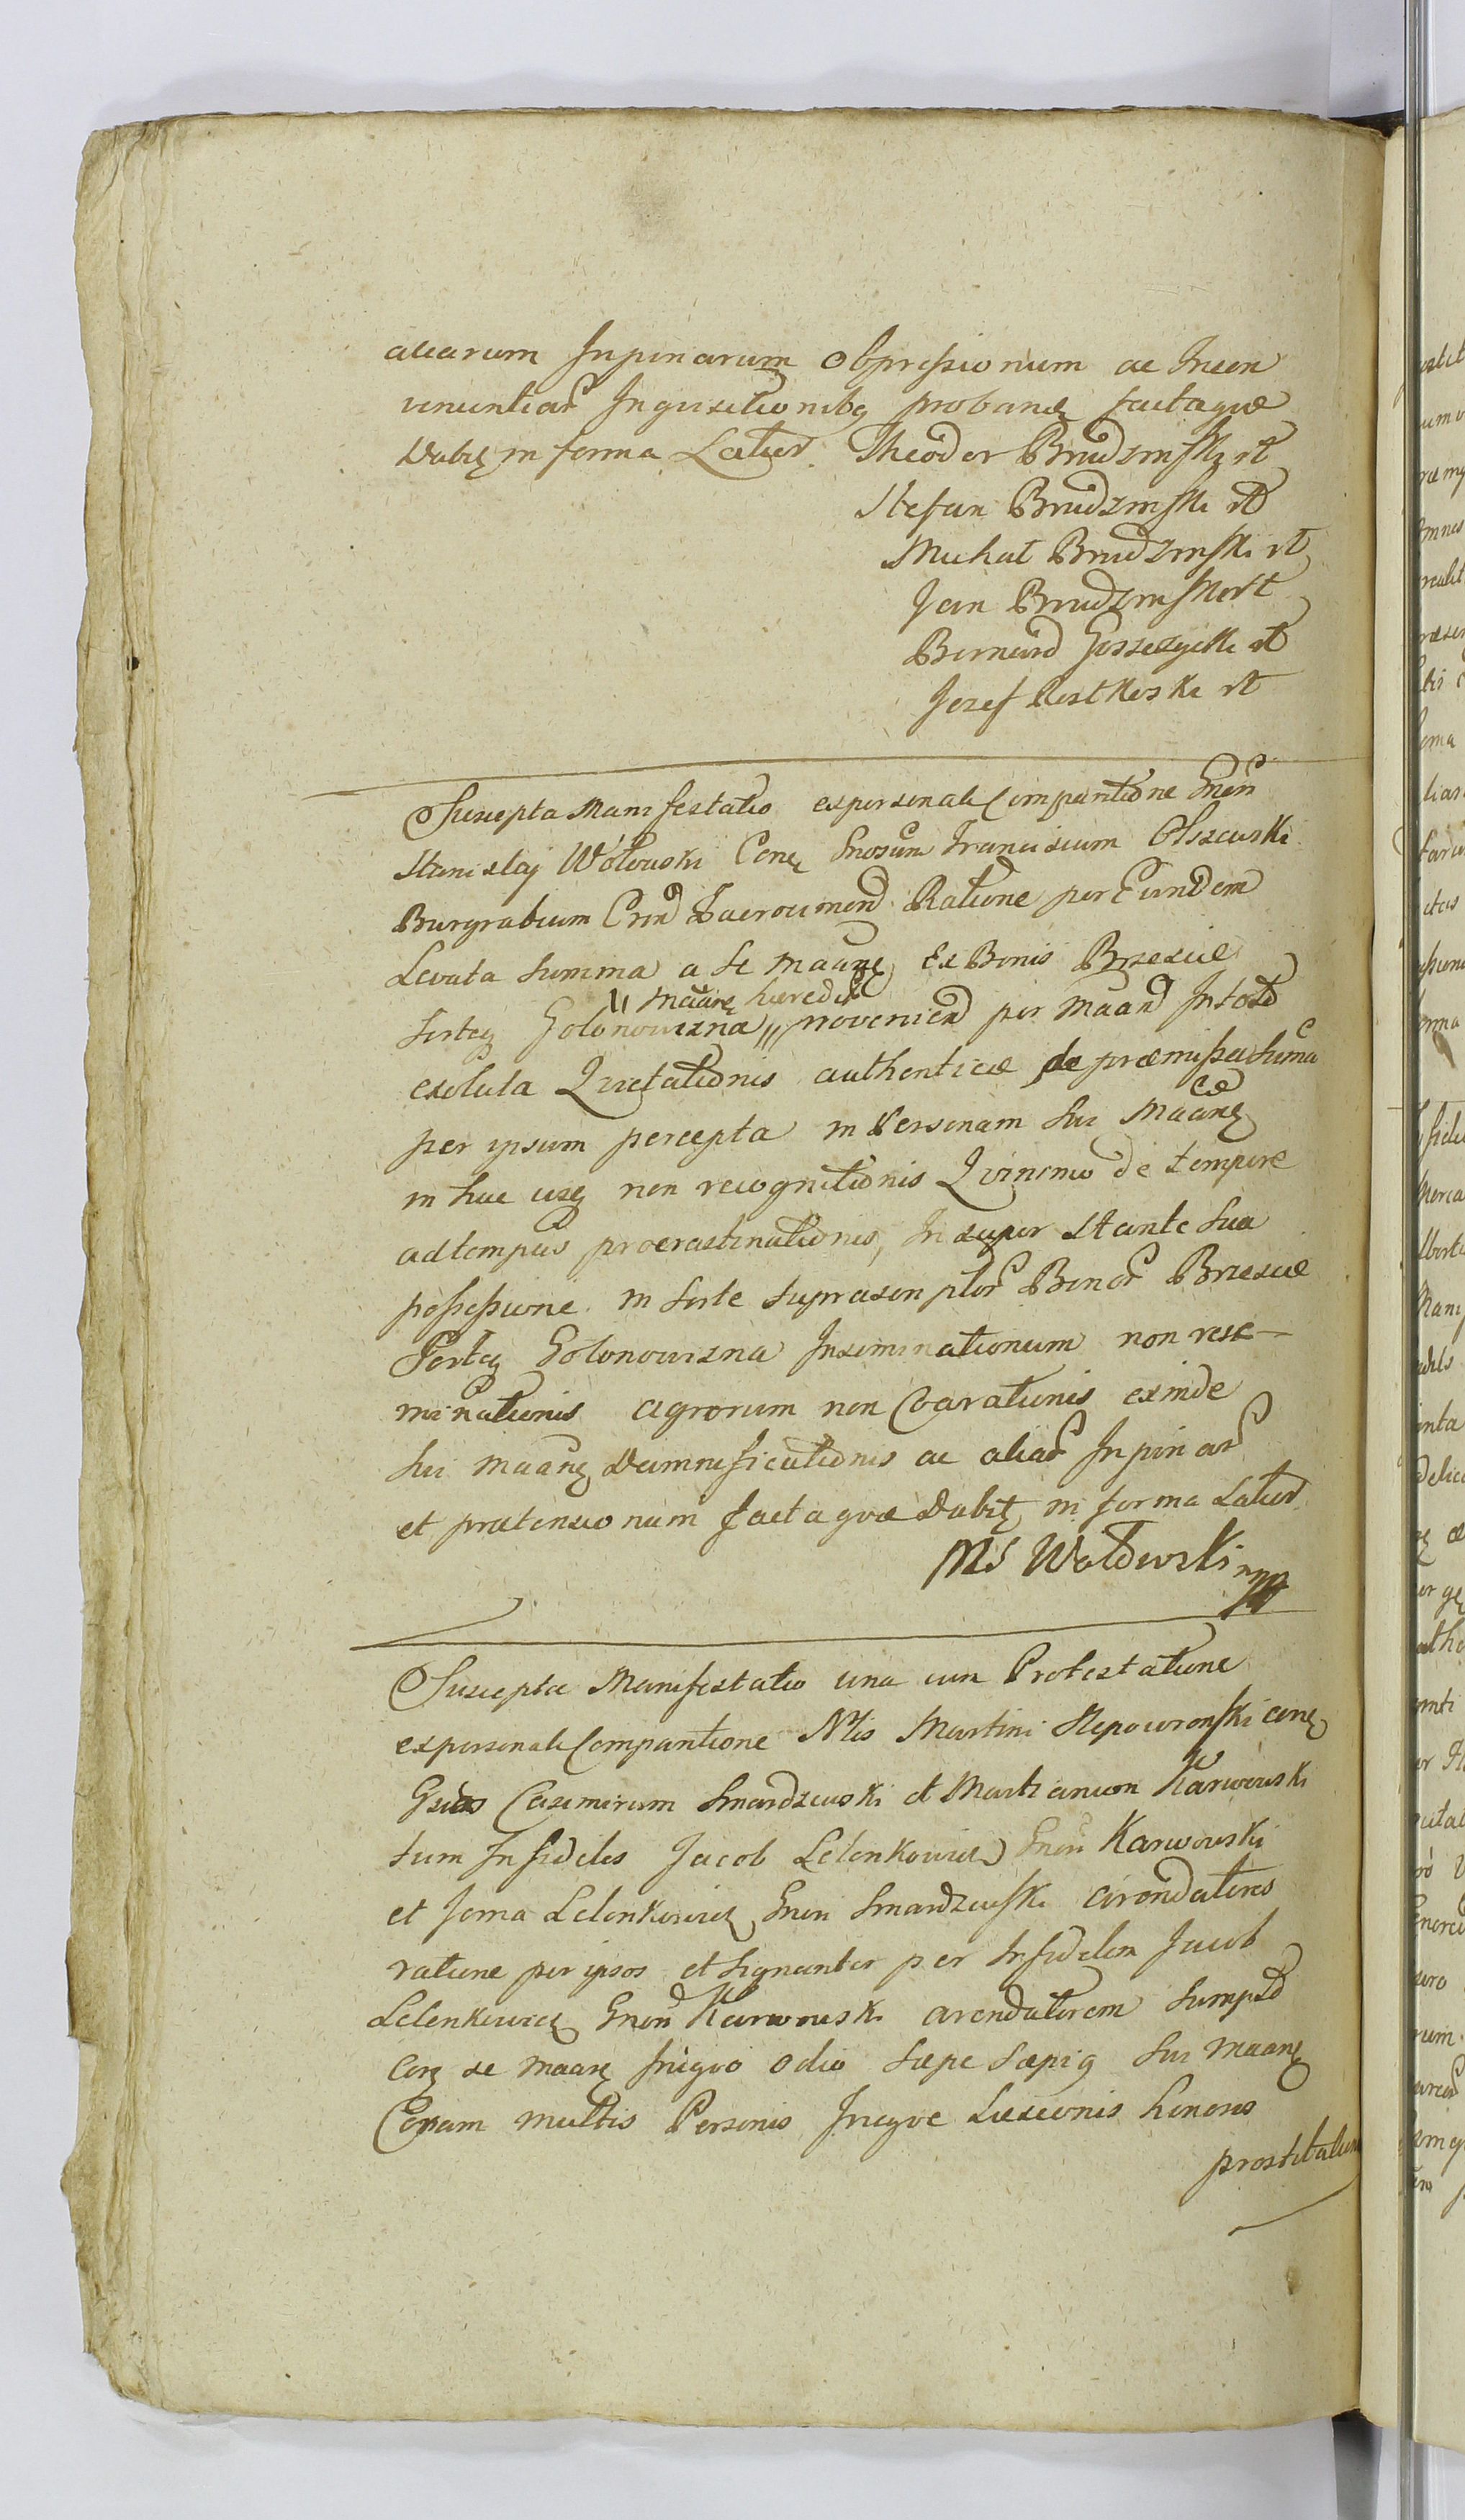 aliarum Injuriarum Obpressionum ac Incon
venientiar Inquisitionibq probandę factaque
Dabit in forma Latior. Theodor Brudzinski rt
Stefan Brudzinski rt
Michał Brudzinski rt
Jan Brudzinski rt
Bernard rt
Jozef Rostkoski rt
Suscepta Manifestatio ex personali Comparitione Gnen
Stanislaj Wołowski Conę Gnosum Franciscum Olszewski
Burgrabium Ratione per Eundem
Levata Summa a se Maanę Ex Bonis Brzezie
Sorteq Gołonowizna // provenien per Maand In toto
// Maanę haered
exoluta Quietationis authenticae de praemissa Suma
per ipsum percepta in Personam Sui Maanę
in huc usq non recognitionis Quinimo de tempore
ad tempus procrastinationis, In super stante Sua
possessione in Sorte suprascriptor Bonor Brzezie
Sorteq Gołonowizna Inseminationum non rese-
minationis agrorum non Coarationis exinde
Sui Maanę Damnificationis ac aliar Injuriar
et praetensionum factaque Dabit in forma Latior
MS Wołowski mpp
Suscepta Manifestatio una cum Protestatione
ex personali Comparitione Nlis Martini Slepowronski conę
Gsos Casimirum Smardzewski et Martianum Karwowski
tum Infideles Jacob Lelonkowicz Gnen Karwowski
et Joma Lelonkowicz Gnen Smardzewski arendatores
ratione per ipsos et Signanter per Infidelem Jacob
Lelenkowicz Gnen Karwowski arendatorem Sumpto
Conę se Maanę iniquo odio saepe saepiq Sui Maanę
Coram multis Personis Inque Laesionis honoris
prostitution